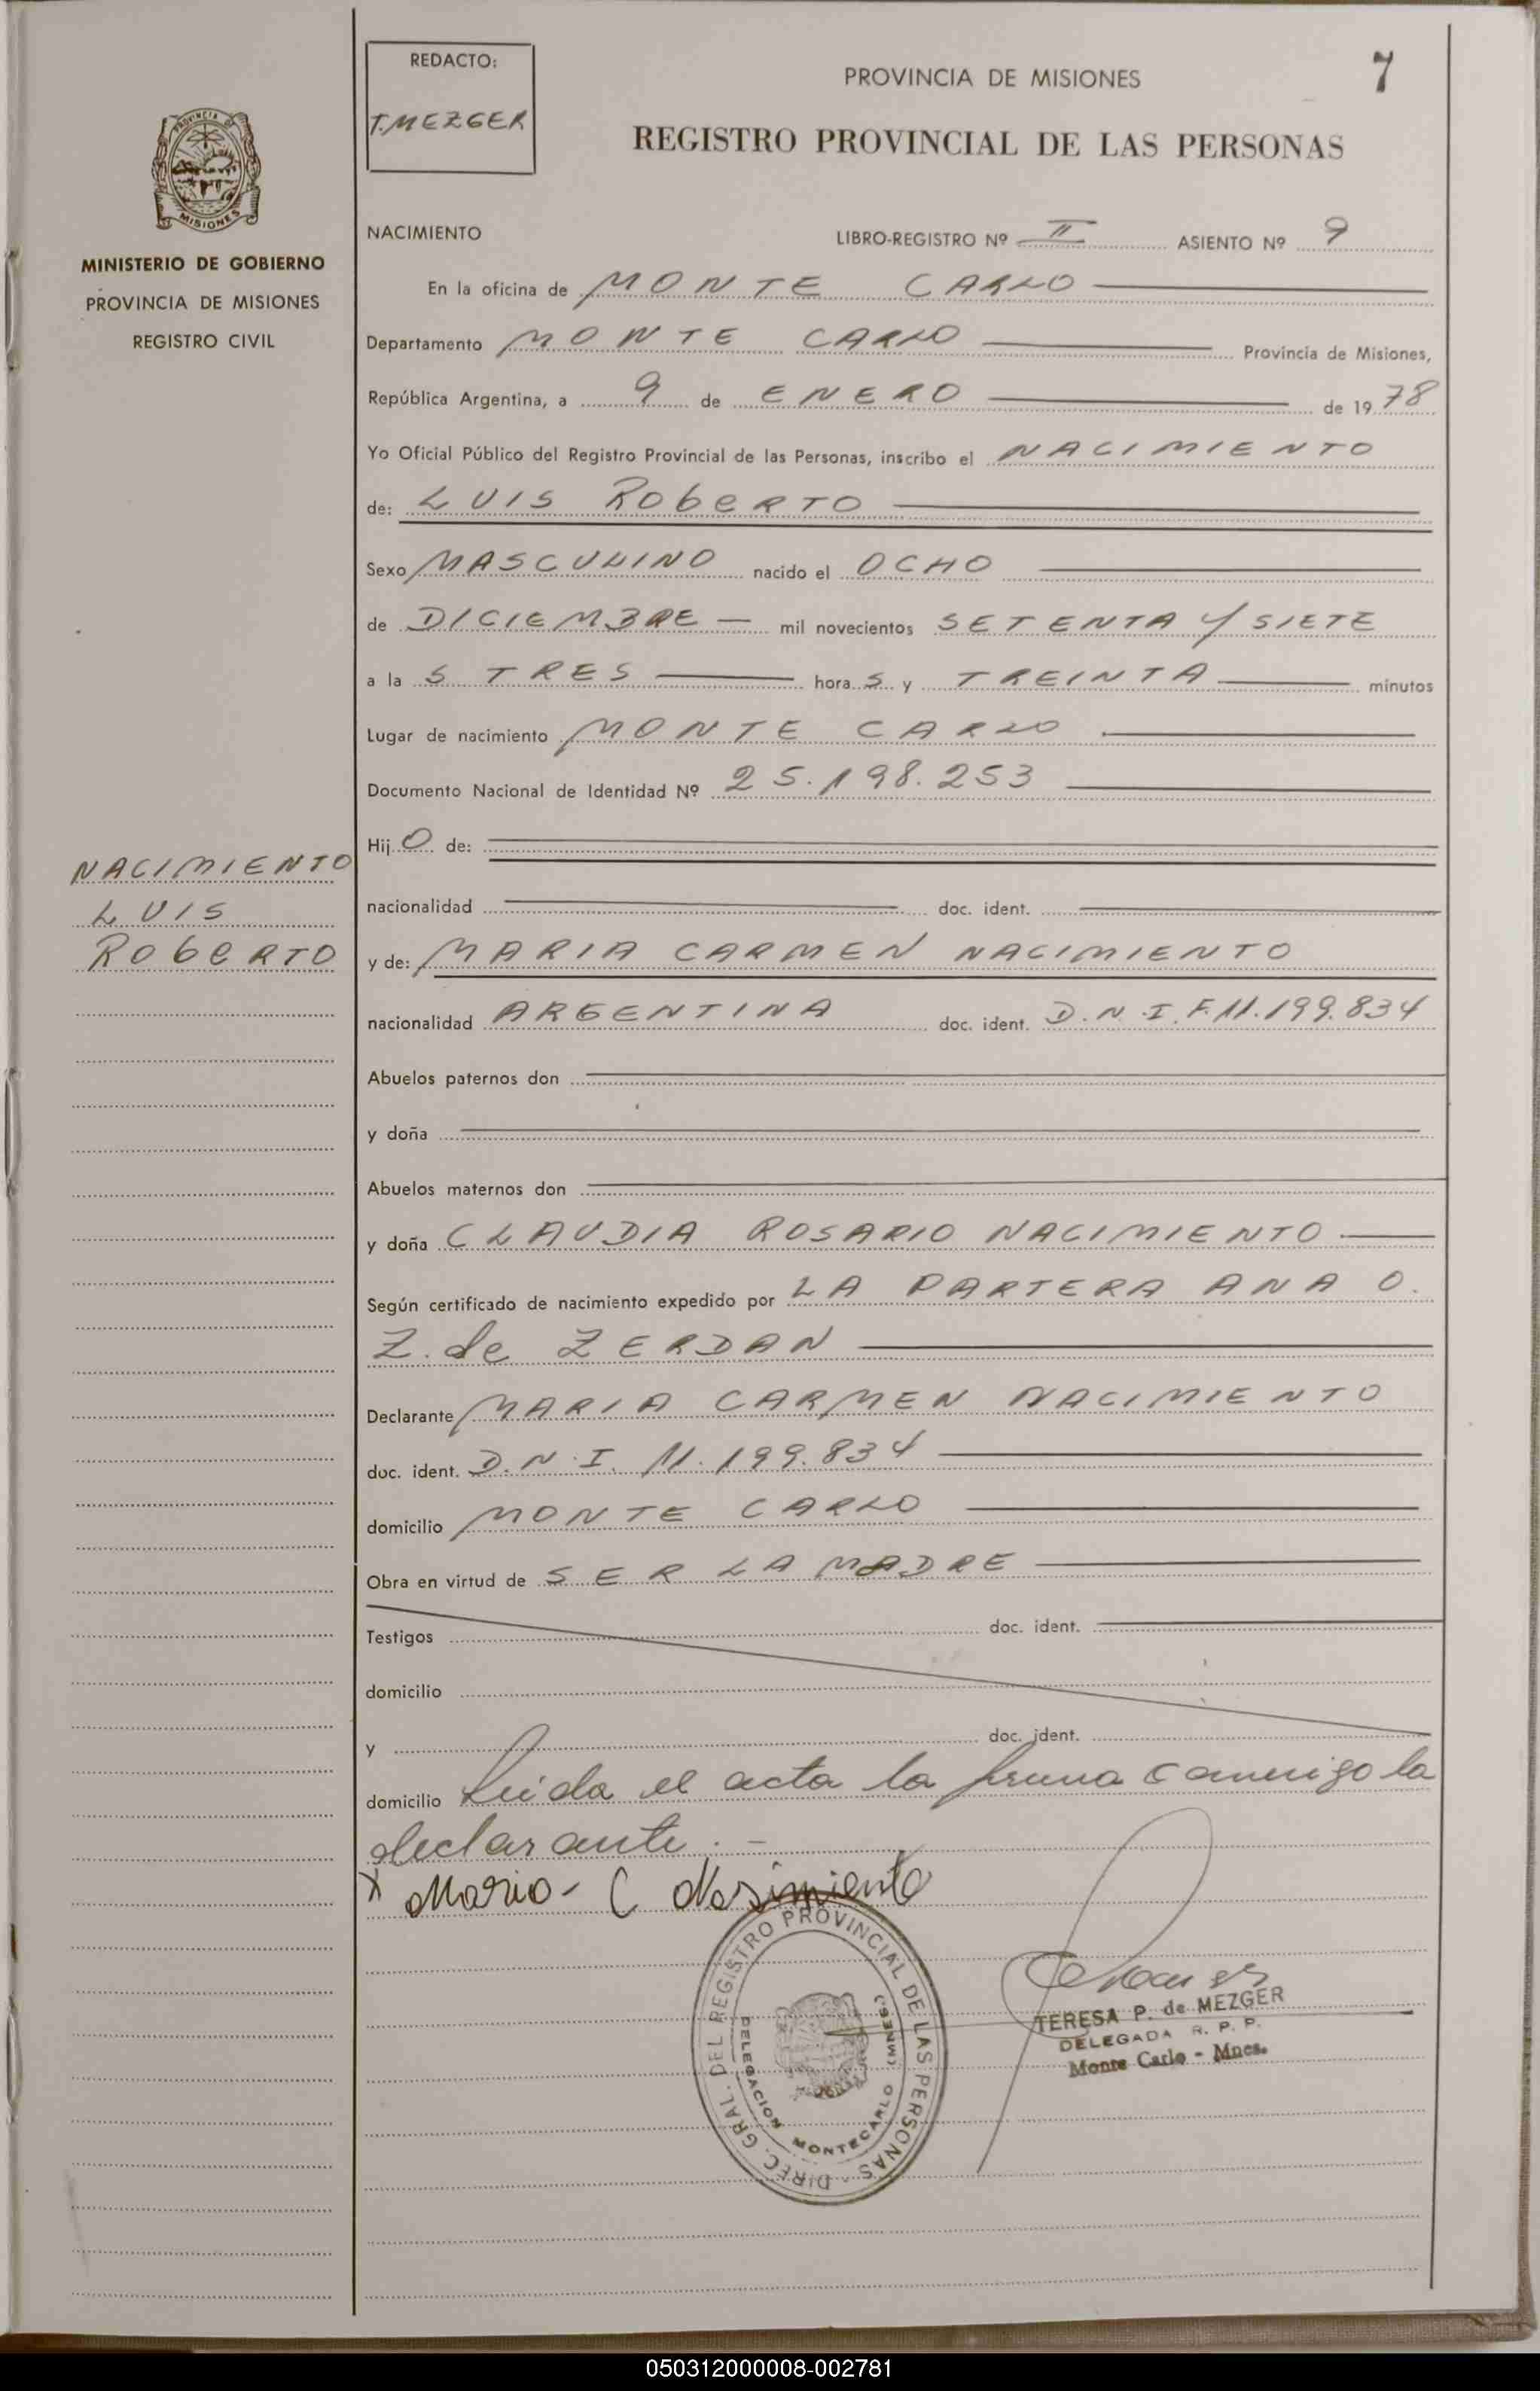 REDACTO:
T. MEZGER
7
PROVINCIA DE MISIONES
REGISTRO PROVINCIAL DE LAS PERSONAS
PROVINCIA DE
MISIONES
MINISTERIO DE GOBIERNO
PROVINCIA DE MISIONES
REGISTRO CIVIL
NACIMIENTO LIBRO-REGISTRO Nº II ASIENTO Nº 9
En la oficina de MONTE CARLO
Departamento MONTE CARLO Provincia de Misiones,
República Argentina, a 9 de ENERO de 1978
Yo Oficial Público del Registro Provincial de las Personas, inscribo el NACIMIENTO
de: LUIS RobeRTO
Sexo MASCULINO nacido el OCHO
de DICIEMBRE — mil novecientos SETENTA Y SIETE
a la S TRES hora S y TREINTA minutos
Lugar de nacimiento MONTE CARLO
Documento Nacional de Identidad Nº 25.198.253
Hij O de:
NACIMIENTO
LUIS
RobeRTO
nacionalidad doc. ident.
y de: MARIA CARMEN NACIMIENTO
nacionalidad ARGENTINA doc. ident. D.N.I. F. 11.199.834
Abuelos paternos don
y doña
Abuelos maternos don
y doña CLAUDIA ROSARIO NACIMIENTO
Según certificado de nacimiento expedido por LA PARTERA ANA O.
Z. de ZERDAN
Declarante MARIA CARMEN NACIMIENTO
doc. ident. D.N.I. 11.199.834
domicilio MONTE CARLO
Obra en virtud de SER LA MADRE
Testigos doc. ident.
domicilio
y doc. ident.
domicilio Leida el acta la firma conmigo la
declarante. -
x Maria - C Nasimiento
DIREC. GRAL. DEL REGISTRO PROVINCIAL DE LAS PERSONAS
DELEGACION MONTECARLO (MNES.)
TERESA P. de MEZGER
DELEGADA R. P. P.
Monte Carlo - Mnes.
050312000008-002781